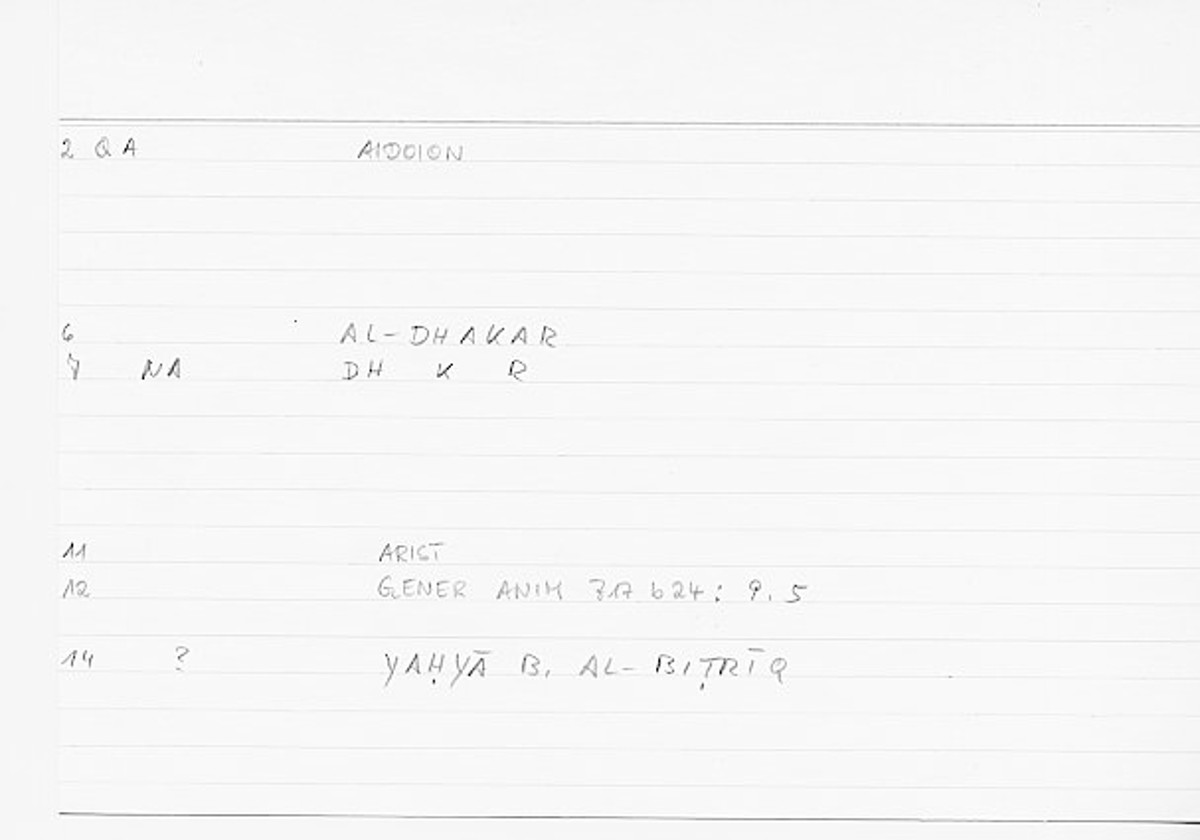 2 QA AIDOION
6 AL-DHAKAR
7 NA DH K R
11 ARIST
12 GENER ANIM 717 b 24 : 9.5
14 ? YAḤYĀ B. AL-BIṬRĪQ